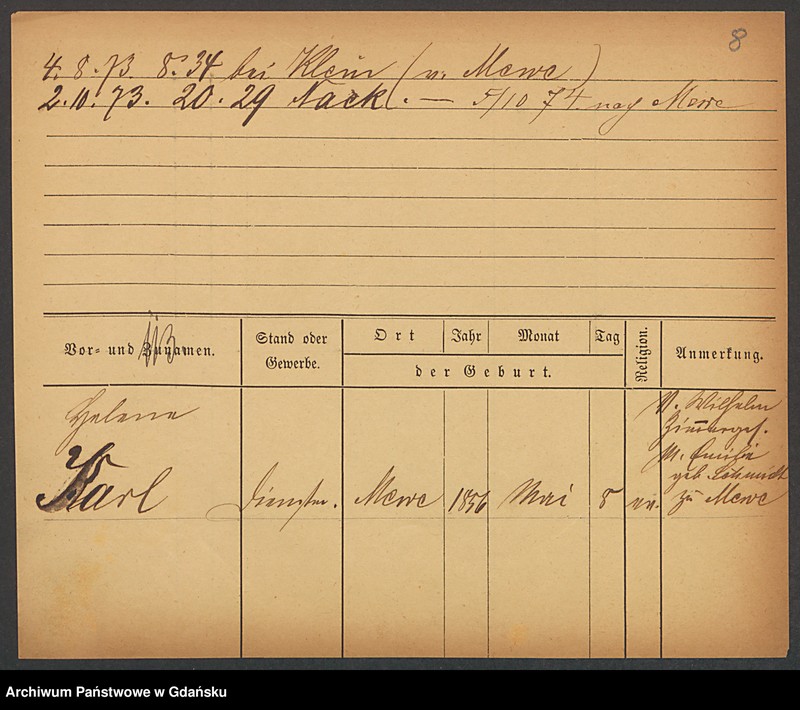 8
4. 8. 73. 8. 34 bei Klein (v. Mewe)
2. 10. 73. 20. 29 Nack. — 5/10 74. nach Mewe
Vor- und Zunamen.
Stand oder Gewerbe.
Ort Jahr Monat Tag
der Geburt.
Religion.
Anmerkung.
Helene
Karl Dienstm. Mewe 1856 Mai 8 ev.
V. Wilhelm
Zimmerges.
M. Emilie
geb. Schmidt
zu Mewe
Archiwum Państwowe w Gdańsku